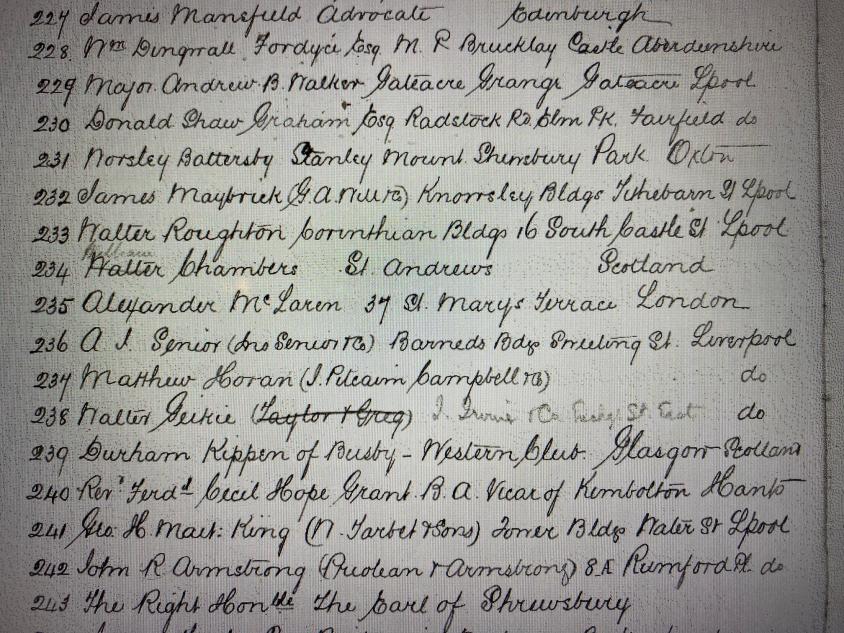 227 James Mansfield Advocate Edinburgh
228. Wm Dingwall Fordyce Esq. M. P. Brucklay Castle Aberdeenshire
229 Major Andrew B. Walker Gateacre Grange Gateacre Lpool
230 Donald Shaw Graham Esq Radstock Rd. Elm Pk. Fairfield do
231 Worsley Battersby Stanley Mount Shrewsbury Park Oxton
232 James Maybrick (G.A. Witt & Co) Knowsley Bldgs Tithebarn St Lpool
233 Walter Roughton Corinthian Bldgs 16 South Castle St Lpool
William
234 Walter Chambers St. Andrews Scotland
235 Alexander McLaren 37 St. Marys Terrace London
236 A. I. Senior (Jno Senior & Co) Barneds Bdgs Sweeting St. Liverpool
237 Matthew Horan (I. Pitcairn Campbell & Co) do
238 Walter Geikie (Taylor & Greg) J. Irvine & Co St. East do
239 Durham Kippen of Busby - Western Club. Glasgow Scotland
240 Revd Ferdd Cecil Hope Grant B.A. Vicar of Kimbolton Hants
241 Geo. H. Mait: King (W. Tarbet & Sons) Tower Bldgs Water St Lpool
242 John R Armstrong (Prolean & Armstrong) 8A Rumford Pl. do
243 The Right Honble The Earl of Shrewsbury